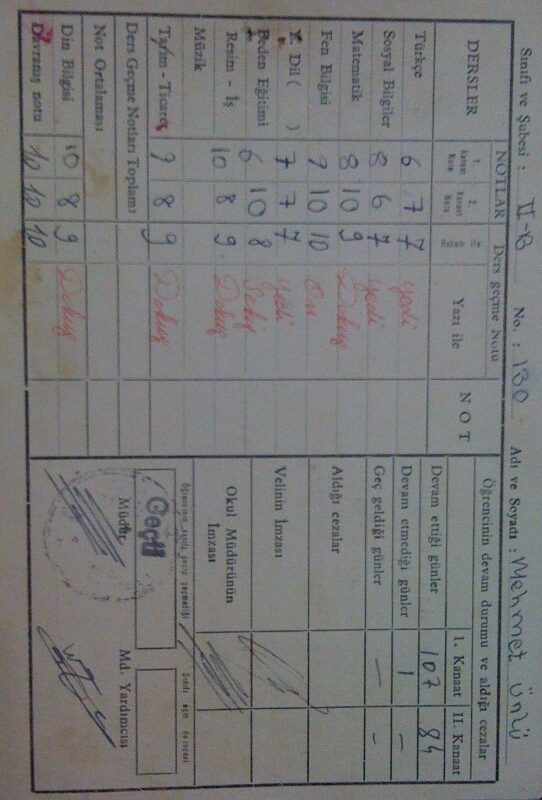 Sınıfı ve Şubesi : II-B No. : 130 Adı ve Soyadı : Mehmet Ünlü
DERSLER NOTLAR Ders geçme Notu NOT
1. Kanaat Notu 2. Kanaat Notu Rakam ile Yazı ile
Türkçe 6 7 7 yedi
Sosyal Bilgiler 8 6 7 yedi
Matematik 8 10 9 Dokuz
Fen Bilgisi 9 10 10 On
Y. Dil ( ) 7 7 7 yedi
Beden Eğitimi 6 10 8 Sekiz
Resim - İş 10 8 9 Dokuz
Müzik
Tarım - Ticaret 9 8 9 Dokuz
Ders Geçme Notları Toplamı
Not Ortalaması
Din Bilgisi 10 8 9 Dokuz
Davranış notu 10 10 10
Öğrencinin devam durumu ve aldığı cezalar
I. Kanaat II. Kanaat
Devam ettiği günler 107 84
Devam etmediği günler 1 –
Geç geldiği günler – –
Aldığı cezalar
Velinin İmzası
Okul Müdürünün İmzası
Öğrencinin sınıfı geçip geçmediği
Geçti
Müdür Md. Yardımcısı